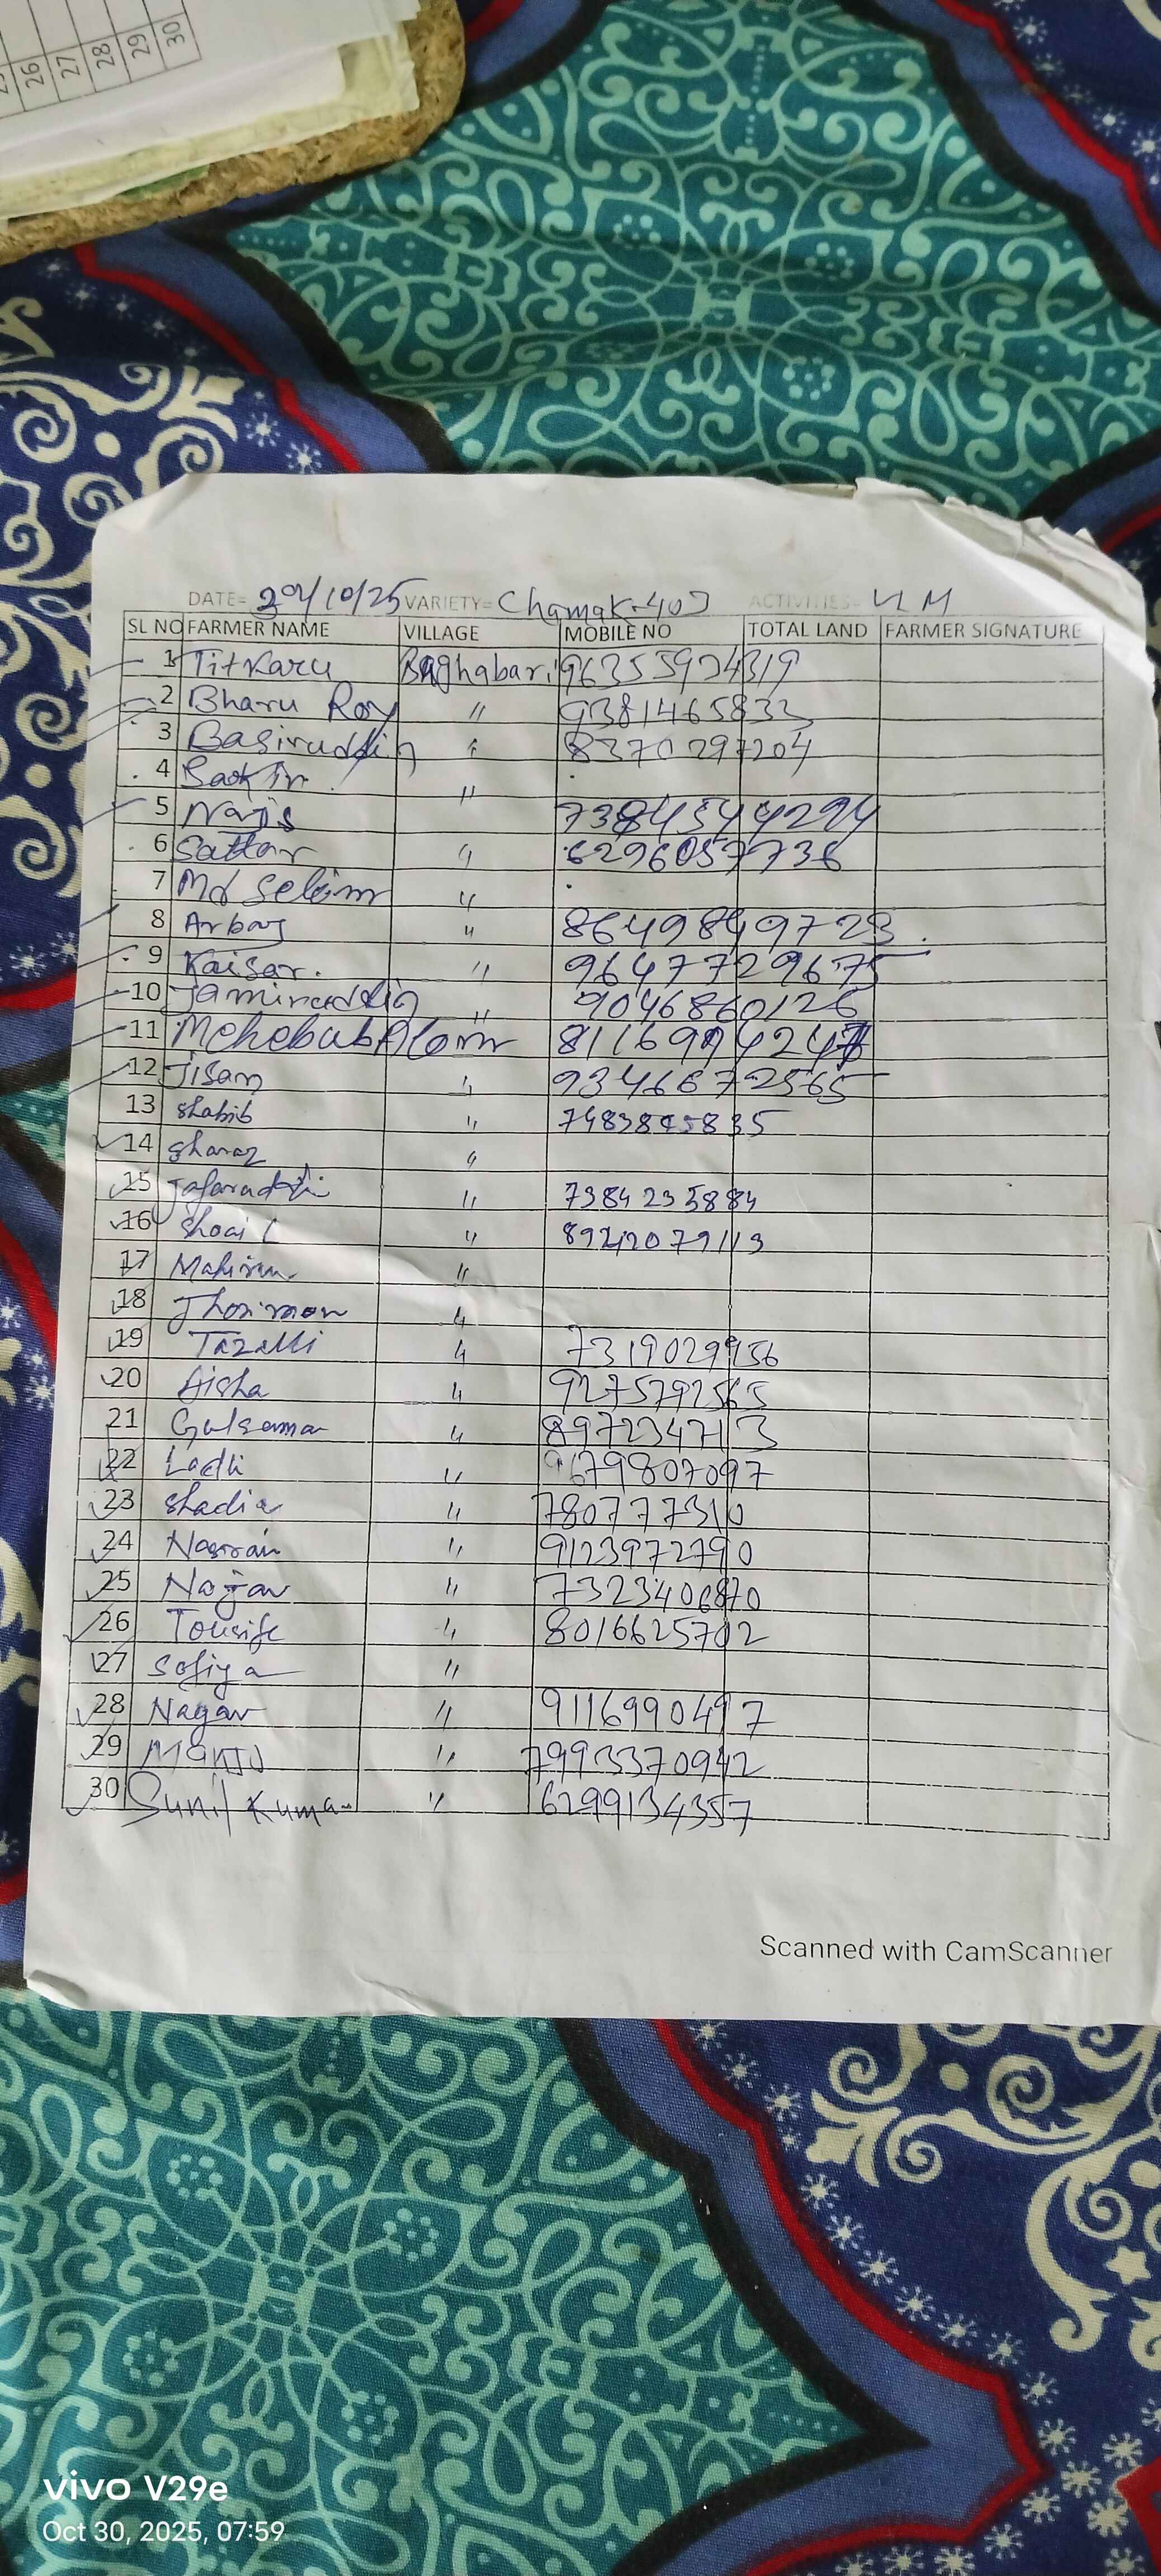 26
27
28
29
30
DATE= 29/10/25 VARIETY= Chamak-403 ACTIVITIES= VLM
SL NO FARMER NAME VILLAGE MOBILE NO TOTAL LAND FARMER SIGNATURE
1 Titkaru Baghabari 96355974319
2 Bharu Roy " 9381465833
3 Basiruddin " 8370297204
4 "
5 Najis 7384544294
6 Sattar " 6296057736
7 Md Selim "
8 Arbaj " 8649849723
9 Kaisar. " 9647729675
10 Jamiruddin " 9046860126
11 Mehebub Alom
12 Jisan " 9346672565
13 Shabib " 7483845835
14 "
15 " 7384235884
16 Shoail " 89242079113
17 "
18 "
19 " 7319029956
20 Aisha " 9275792565
21 " 8972347113
22 Ladli " 9679807097
23 Shadia " 780777310
24 " 9123972790
25 " 7323406870
26 Tousife " 8016625702
27 Sofiya "
28 Nagar " 9116990497
29 " 7993370942
30 Sunil Kumar " 6299134357
Scanned with CamScanner
vivo V29e
Oct 30, 2025, 07:59